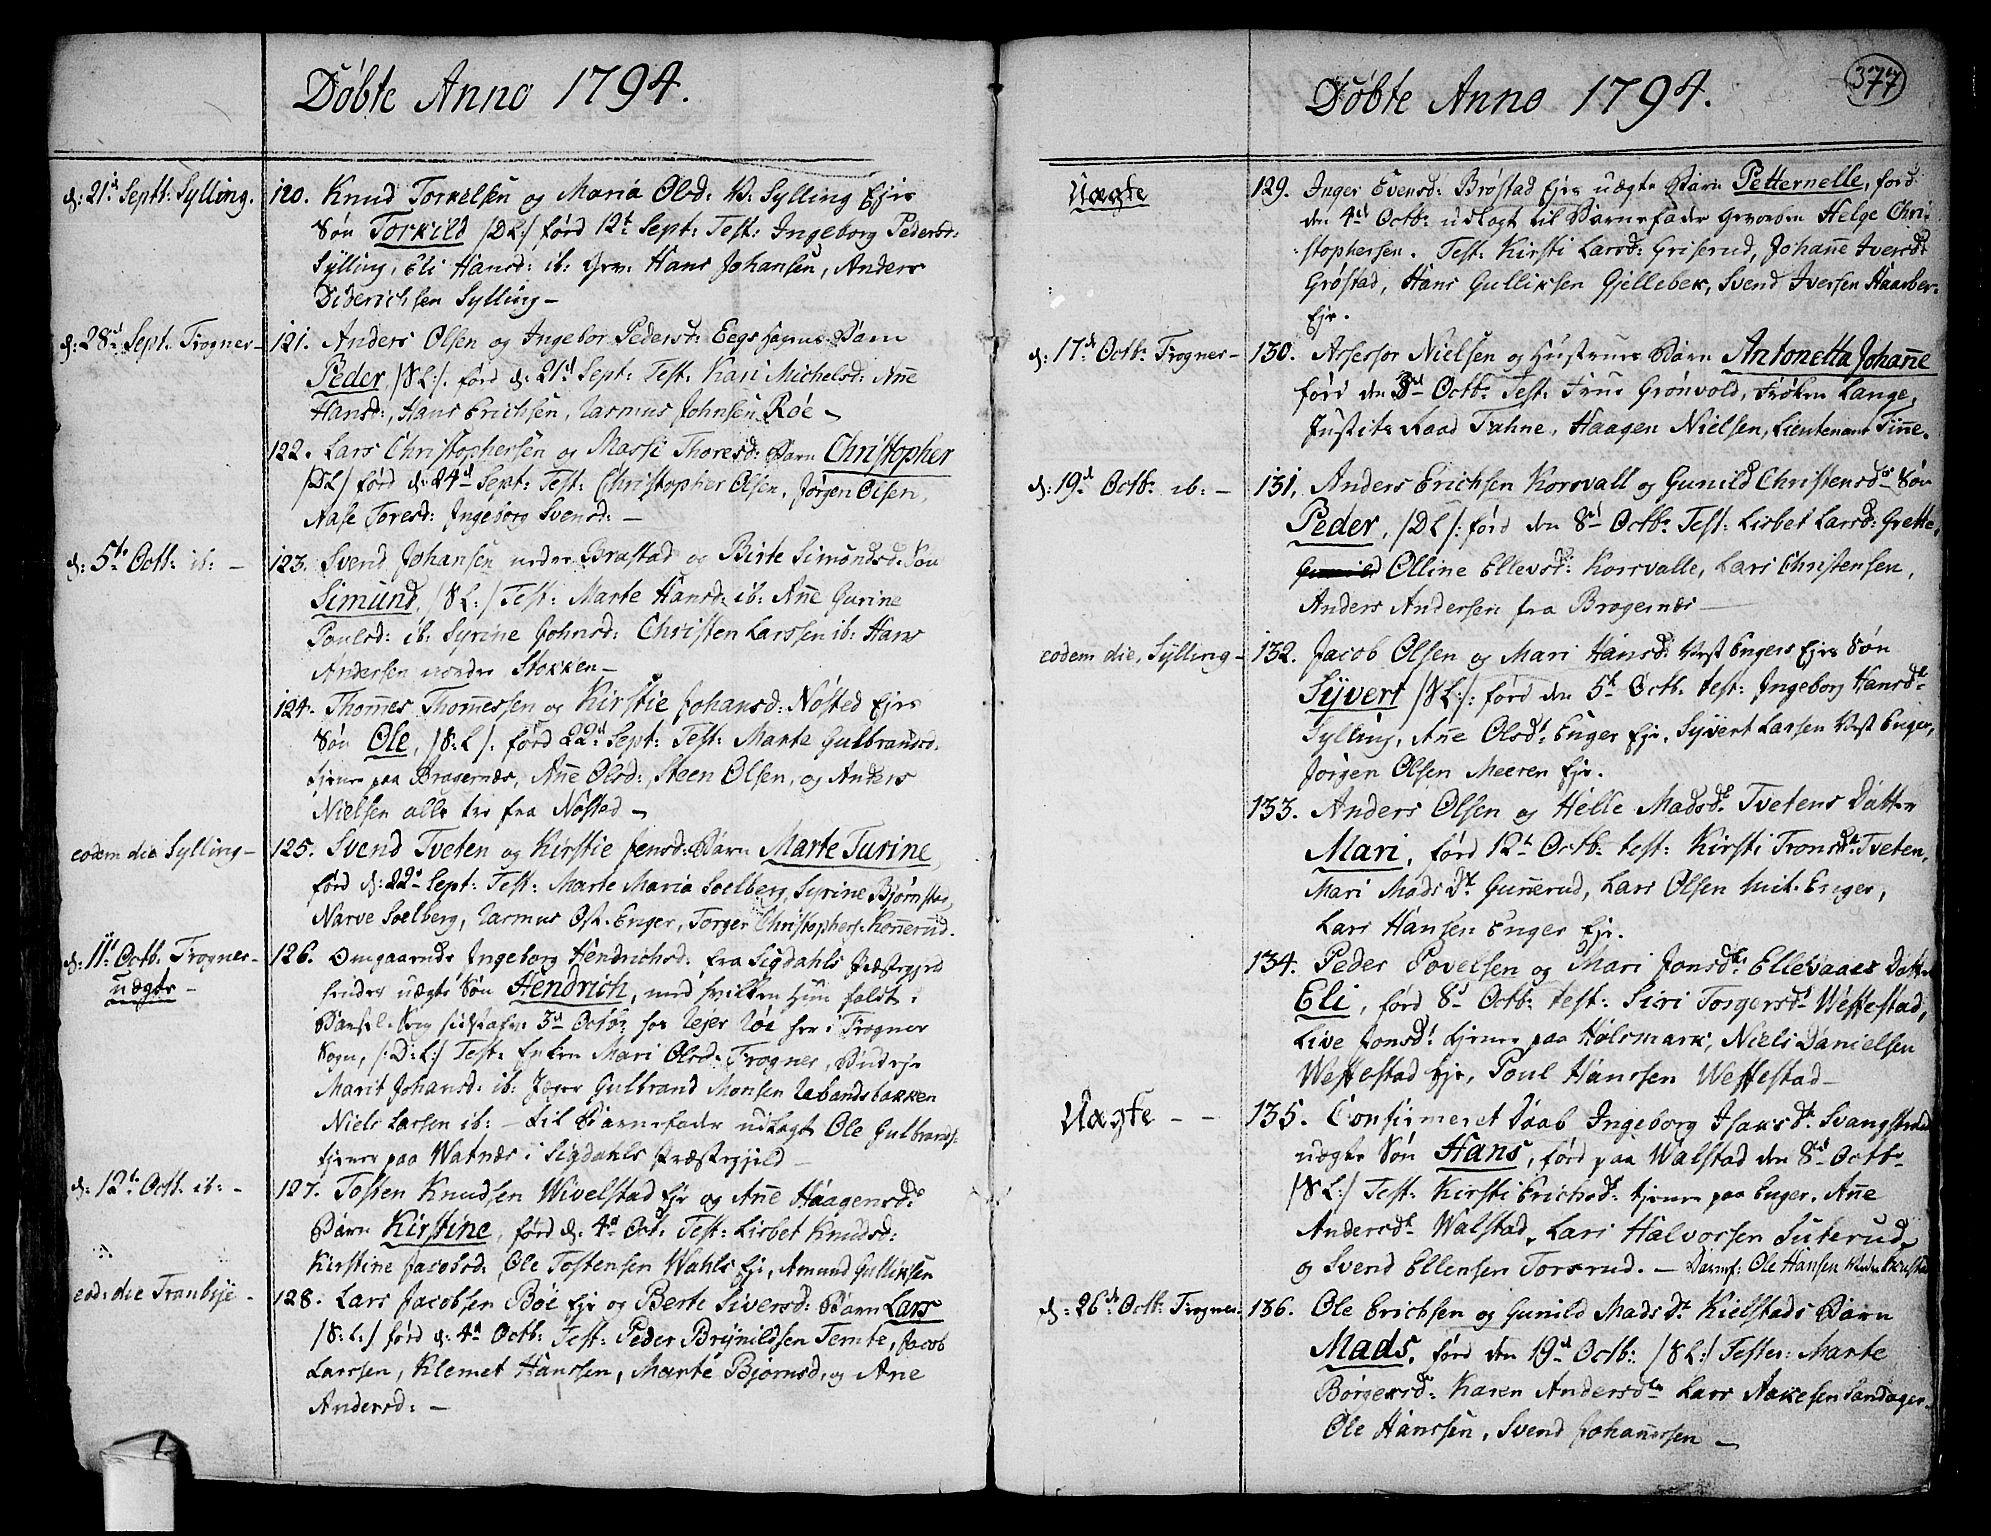 Døbte Anno 1794.
d: 21d Septt: Sylling. 120. Knud Torkelsen og Maria Olsd: V: Sylling Ejes
Søn Torkild /DL/ førd 12t Sept: Test: Ingeborg Pedersd:
Sylling, Eli Hansd: ib: Hans Johansen, Anders
Diderichsen Sylling –
d: 28d Sept: Trogner – 121. Anders Olsen og Ingebor Pedersd: Eegs Barn
Peder /SL:/. førd d: 21d Sept: Test: Kari Michelsd: Añe
Hansd:, Hans Erichsen, Rasmus Johnsen Røe –
122. Lars Christophersen og Massi Thoresd: Barn Christopher
/DL/ førd d: 24d Sept: Test: Christopher Olsen, Jørgen Olsen,
Aase Toresd: Ingeborg Svensd: –
d: 5te Octb: ib: – 123. Svend Johansen nedre Brastad og Birte Simonsd: Søn
Simund, /SL:/ Test: Marte Hansd: ib: Añe Gurine
Paulsd: ib: Syrine Johnsd: Christen Larssen ib: Hans
Andersen nordre Stokken –
124. Thom̃es Thom̃essen og Kirstie Johansd: Nøsted Ejes
Søn Ole, /S:L/. førd 22d Sept: Test: Marte Gulbrandsd:
tjener paa Bragernæs, Añe Olsd:, Steen Olsen, og Anders
Nielsen alle tre fra Nøsted –
eodem die Sylling – 125. Svend Tveten og Kirstie Jensd: Barn Marte Turine,
førd d: 22d Sept: Test: Marte Maria Soelberg, Syrine Bjørnstad,
Narve Soelberg, Rasmus Ost-Enger, Torger Christophers: Koñerud.
d: 11t Octb: Trogner – 126. Omgaaende Ingeborg Hendrichsd: fra Sigdahls Præstegjeld
uægte – hendes uægte Søn Hendrich, med hvilken hun faldt i
Barsel-Seng sidstafv: 3d Octb: hos Rejer Røe her i Trogner
Sogn, /:D:L:/ Test: Enken Mari Olsd: Trogner, Budeje
Marit Johansd: ib: Jæger Gulbrand Monsen Rabandsbakken
Niels Larsen ib: – til Barnefader udlagt Ole Gulbrands:
tjener paa Watnæs i Sigdahls Præstegjeld –
d: 12te Octb. ib: – 127. Tosten Knudsen Wivelstad Eje og Añe Haagensd:
Barn Kirstine, førd d: 4d Oct. Test: Lisbet Knudsd:
Kirstine Jacobsd: Ole Tostensen Wahls Ej:, Amund Gulliksen
eod: die Tranbye – 128. Lars Jacobsen Bøe Eje og Berte Siversd: Barn Lars
/S:L:/ førd d: 4d Octb: Test: Peder Brynildsen Temte, Jacob
Larssen, Klemet Hanssen, Marte Bjørnsd, og Ane
Andersd: –
Døbte Anno 1794. 377
Uægte 129. Inger Evensd: Brøstad Ejes uægte Barn Petternelle, førd
den 4d Octb: udlagt til Barnefader Helge Chri-
stophersen. Test: Kirsti Larsd: Griserud, Johañe Iversd:
Grøstad, Hans Gulliksen Gjellebek, Svend Iversen Haarber-
Eje.
d: 17d Octb: Trogner – 130. Assessor Nielsen og Hustrues Barn Antonetta Johañe
førd den 3d Octb: Test: Frue Grønvold, Frøken Lange,
Justits Raad Fahne, Haagen Nielsen, Lieutenant Fiñe.
d: 19d Octb: ib: – 131. Anders Erichsen Korsvall og Gunild Christensdr Søn
Peder, /DL/: førd den 8d Octb: Test: Lisbet Larsd: Grette,
Olline Ellevsd: Korsvalle, Lars Christensen,
Anders Andersen fra Bragernæs –
eodem die, Sylling – 132. Jacob Olsen og Mari Hansd: Vest Engers Ejes Søn
Syvert /SL:/: førd den 5t Octb: test: Ingeborg Hansdt:
Sylling, Añe Olsdt: Enger Eje, Syvert Larsen Vest Enger,
Jørgen Olsen Meeren Eje.
133. Anders Olsen og Helle Madsdt Tvetens Datter
Mari, førd 12t Octb: test: Kirsti Tronsdt: Tveten,
Mari Madsdt. Guñerud, Lars Olsen Enger,
Lars Hansen Enger Eje.
134. Peder Povelsen og Mari Jonsdt: Ellevaaes Datter
Eli, førd 8d Octb: test: Siri Torgersdt Weffestad,
Live Jonsdt tjener paa Halsmark, Niels Danielsen
Weffestad Eje, Poul Hanssen Weffestad –
Uægte – – 135. Confirmeret Daab Ingeborg Isaksdt. Svangstrand
uægte Søn Hans, førd paa Walstad den 8d Octb:
/SL:/ Test: Kirsti Erichsdt tjener paa Enger, Añe
Andersdt. Walstad, Lars Halvorsen Suterud,
og Svend Ellensen Torsrud. – Barnef: Ole Hansen
d: 26de Octb: Trogner. 136. Ole Erichsen og Gunild Madsdt Kielstads Barn
Mads, førd den 19d Octb: /SL:/ Tester: Marte
Børgersd: Karen Andersdtr Lars Aakesen Landager.
Ole Hanssen, Svend Johañessen –